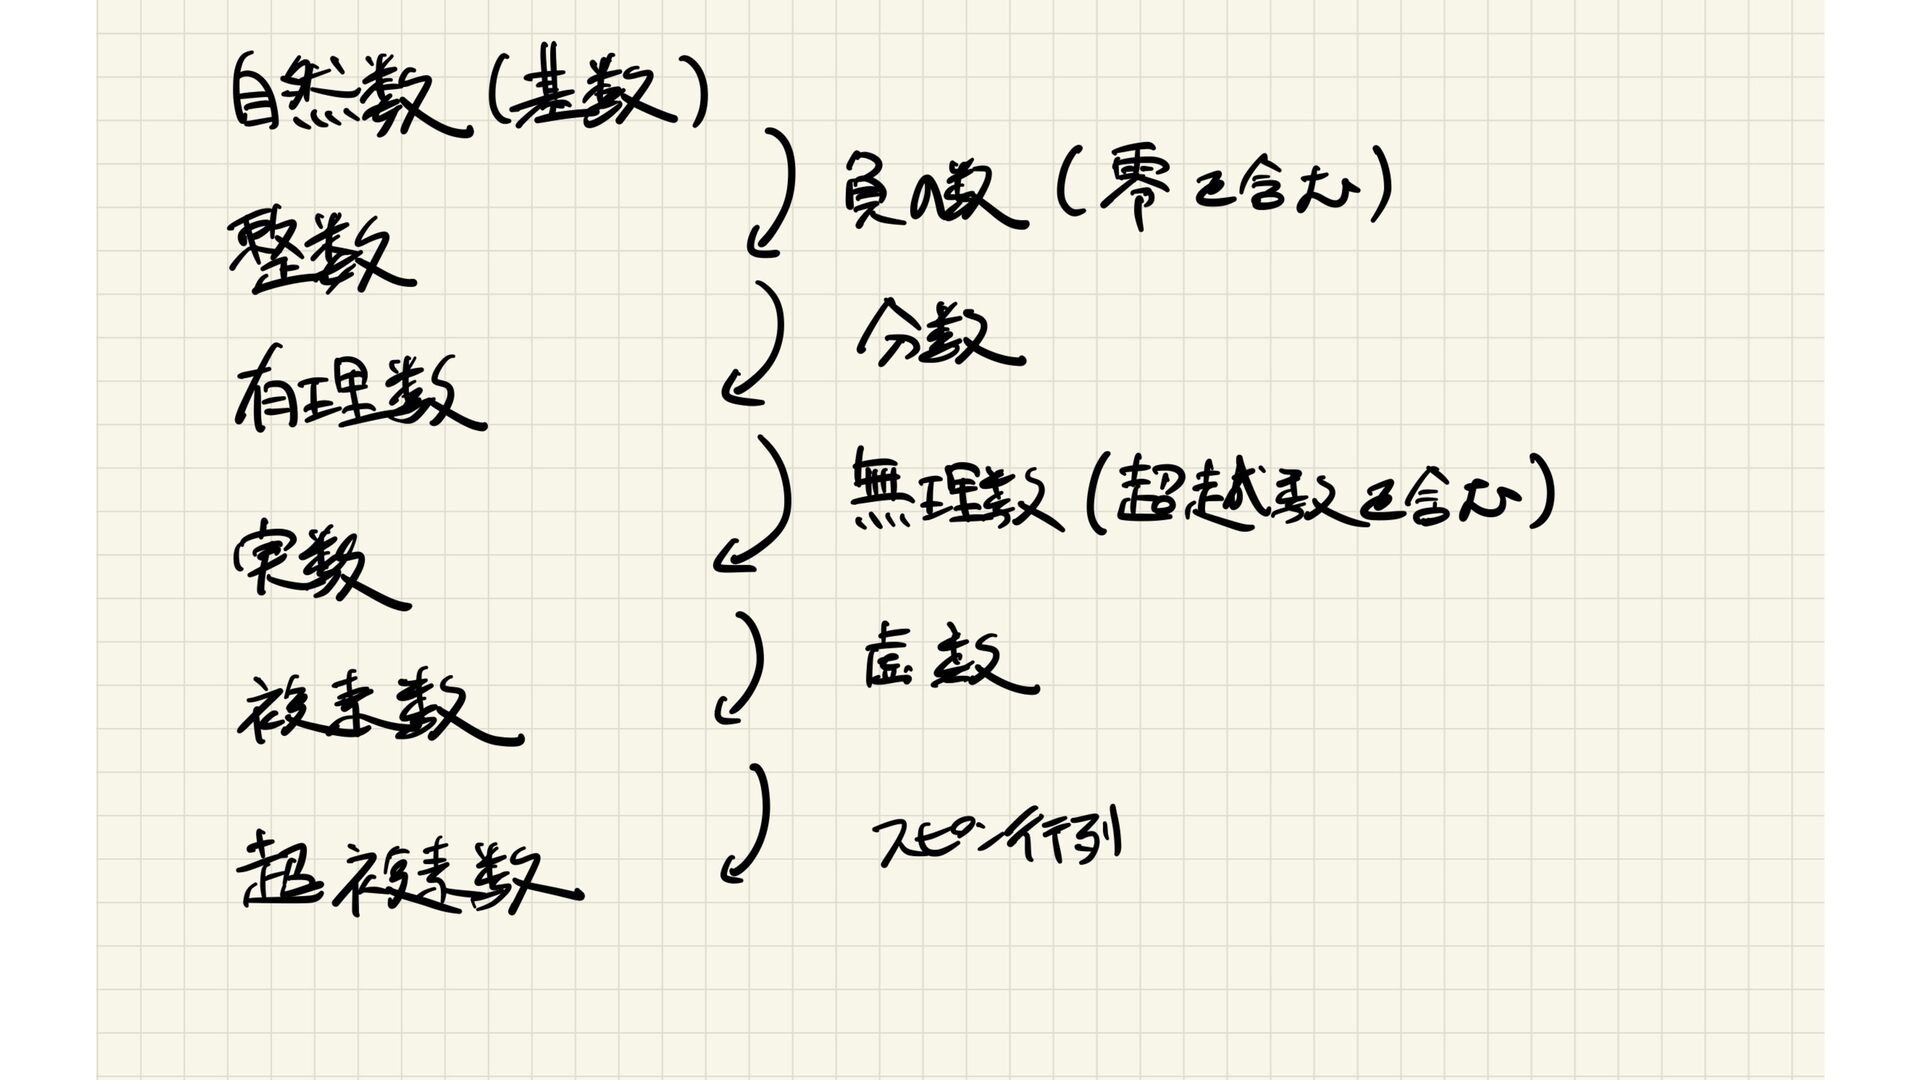 自然数(基数)
負の数(零を含む)
整数
分数
有理数
無理数(超越数を含む)
実数
虚数
複素数
スピン行列
超複素数